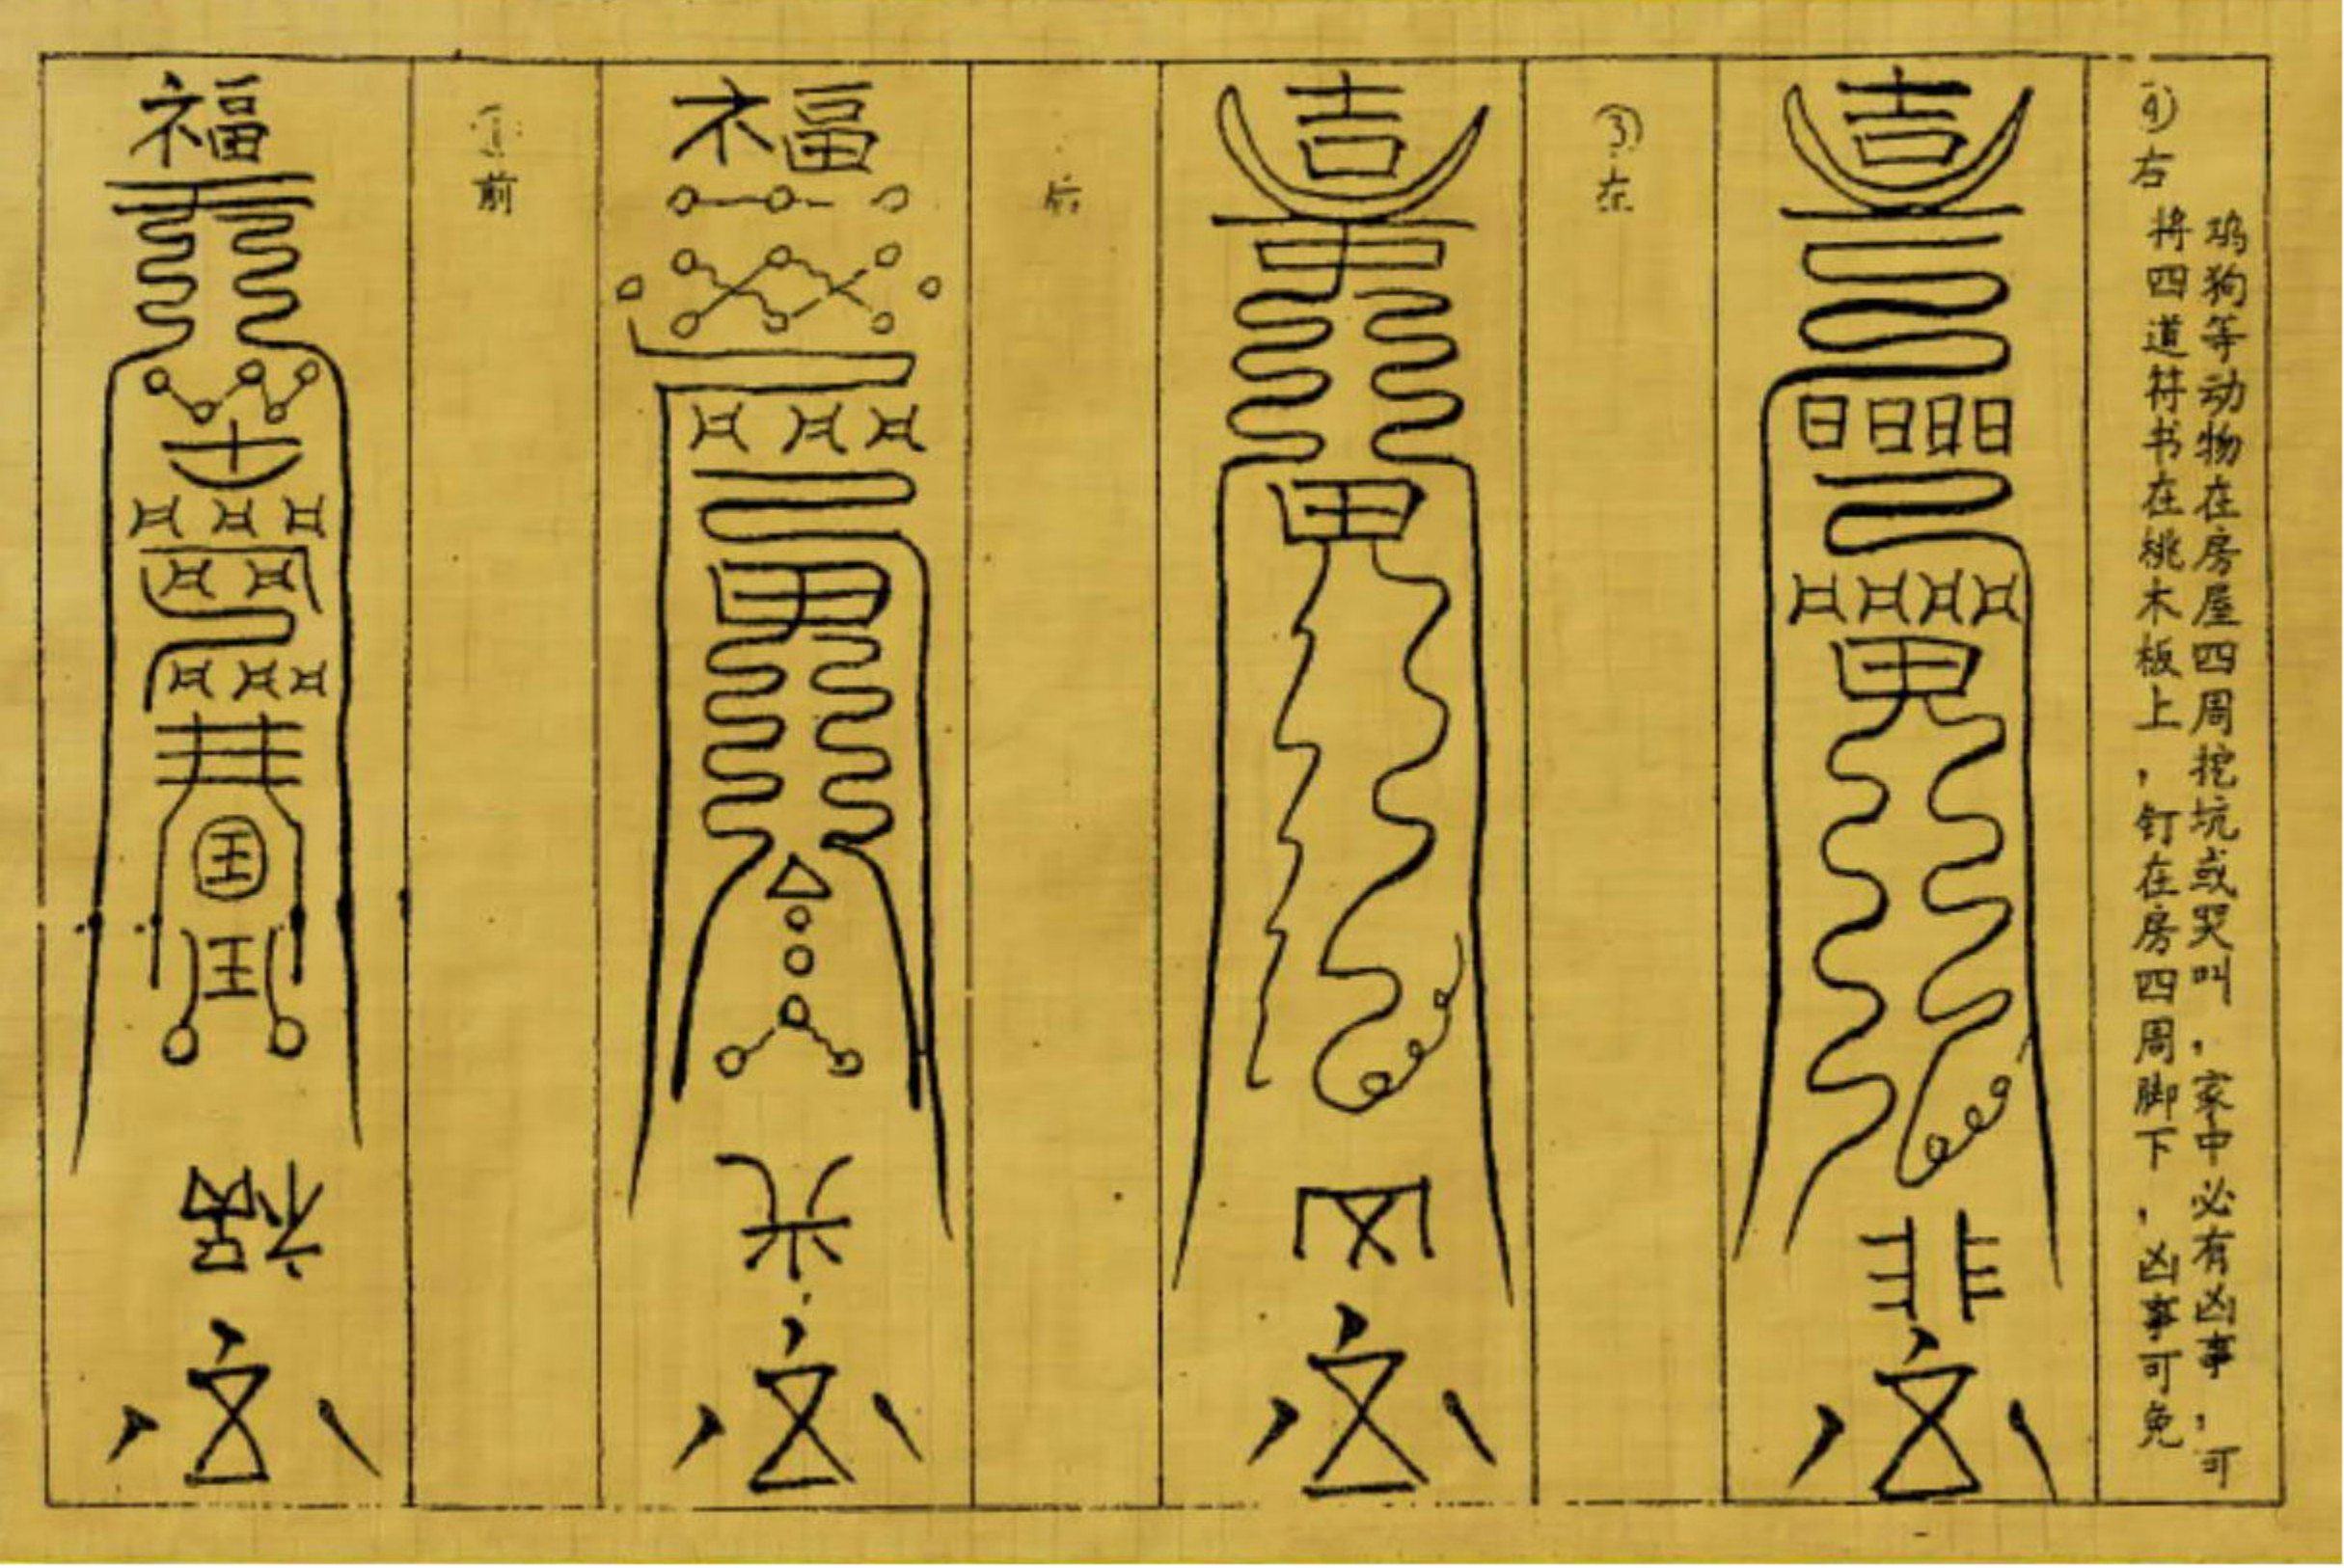 鸡狗等动物在房屋四周挖坑或哭叫，家中必有凶事，可
④右
将四道符书在桃木板上，钉在房四周脚下，凶事可免
吉
日日日日
③左
吉
后
福
①前
福